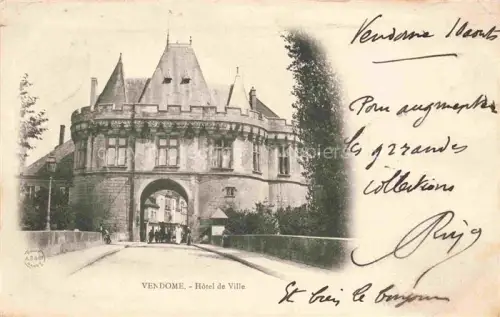 Vendome 10 aout
Pour augmenter
les grandes
collections
VENDOME. - Hôtel de Ville
et bien le bonjour